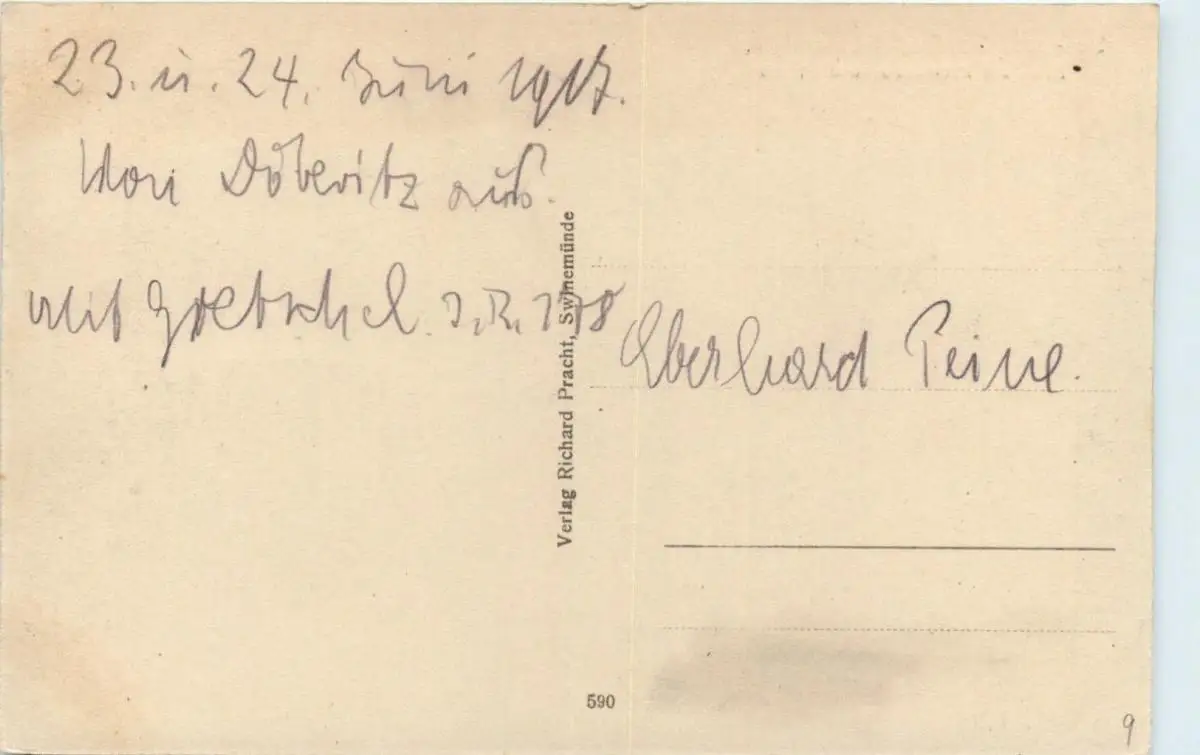 23. u. 24. Juni 1917.
Von Döberitz aus.
mit Goetschel. I. R. 178
Eberhard Peine.
Verlag Richard Pracht, Swinemünde
590
9